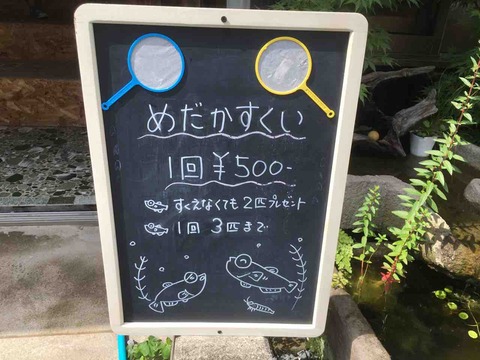 めだかすくい
1回 ¥500-
すくえなくても 2匹プレゼント
1回 3匹まで